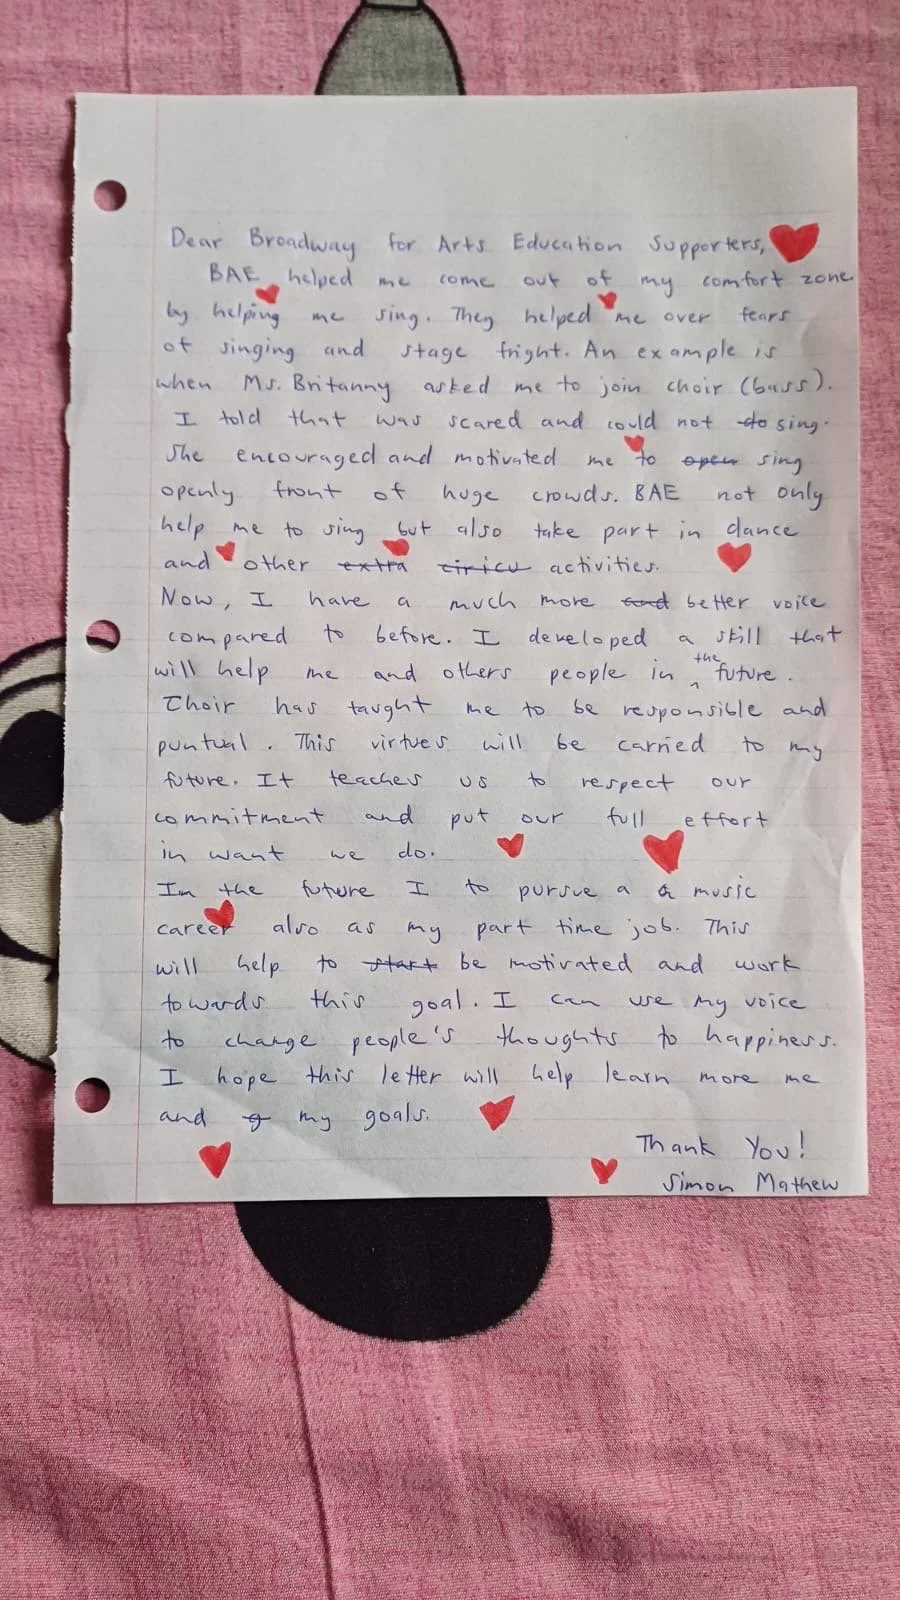 Dear Broadway for Arts Education Supporters,
BAE helped me come out of my comfort zone
by helping me sing. They helped me over fears
of singing and stage fright. An example is
when Ms. Britanny asked me to join choir (bass).
I told that was scared and could not do sing.
She encouraged and motivated me to open sing
openly front of huge crowds. BAE not only
help me to sing but also take part in dance
and other extra ciricu activities.
Now, I have a much more and better voice
compared to before. I developed a skill that
will help me and others people in the future.
Choir has taught me to be responsible and
puntual. This virtues will be carried to my
future. It teaches us to respect our
commitment and put our full effort
in want we do.
In the future I to pursue a a music
career also as my part time job. This
will help to start be motivated and work
towards this goal. I can use my voice
to change people's thoughts to happiness.
I hope this letter will help learn more me
and my goals.
Thank You!
Simon Mathew